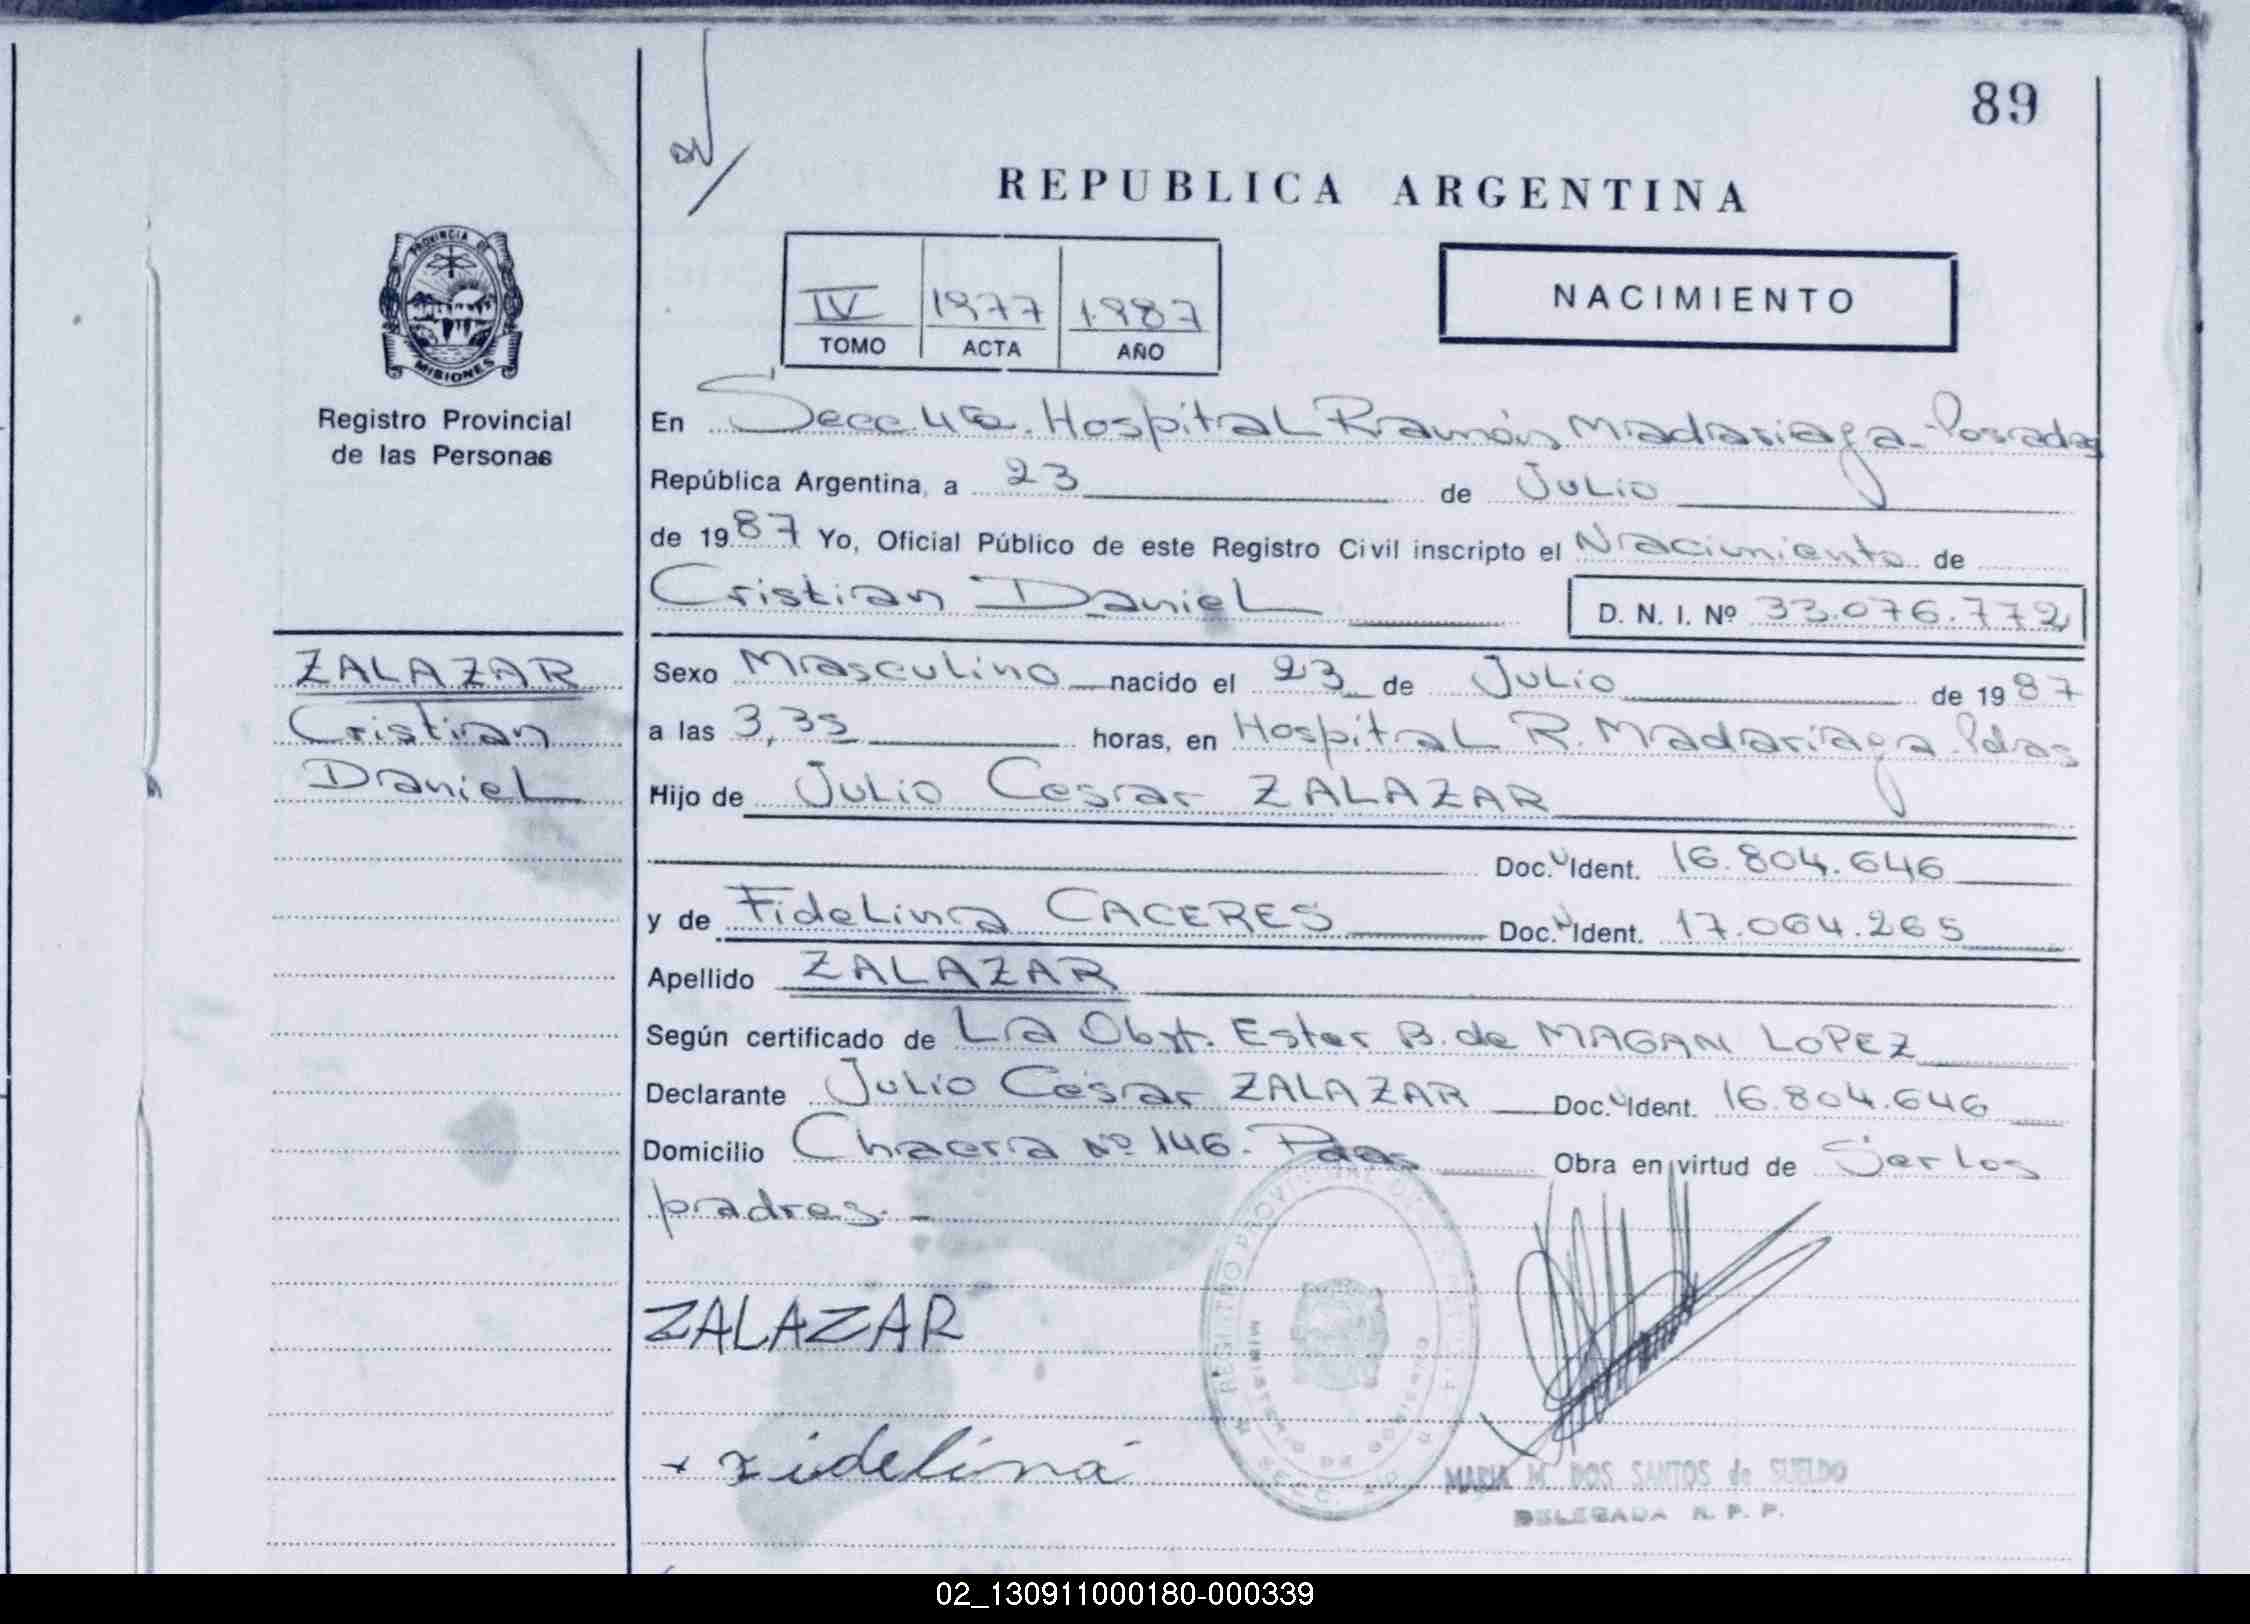 89
REPUBLICA ARGENTINA
PROVINCIA DE
MISIONES
Registro Provincial
de las Personas
IV 1977 1987
TOMO ACTA AÑO
NACIMIENTO
En Secc. 4ta. Hospital Ramón Madariaga - Posadas
República Argentina, a 23 de Julio
de 1987 Yo, Oficial Público de este Registro Civil inscripto el Nacimiento de
Cristian Daniel
D. N. I. Nº 33.076.772
ZALAZAR
Cristian
Daniel
Sexo Masculino nacido el 23 de Julio de 1987
a las 3,35 horas, en Hospital R. Madariaga. Pdas
Hijo de Julio Cesar ZALAZAR
Doc. Ident. 16.804.646
y de Fidelina CACERES Doc. Ident. 17.064.265
Apellido ZALAZAR
Según certificado de La Obst. Ester B. de MAGAN LOPEZ
Declarante Julio Cesar ZALAZAR Doc. Ident. 16.804.646
Domicilio Chacra Nº 146. Pdas Obra en virtud de Ser los
padres. -
ZALAZAR
x Fidelina
REGISTRO PROVINCIAL DE
MINISTERIO DE GOBIERNO
MARIA M. DOS SANTOS de SUELDO
DELEGADA R. P. P.
02_130911000180-000339